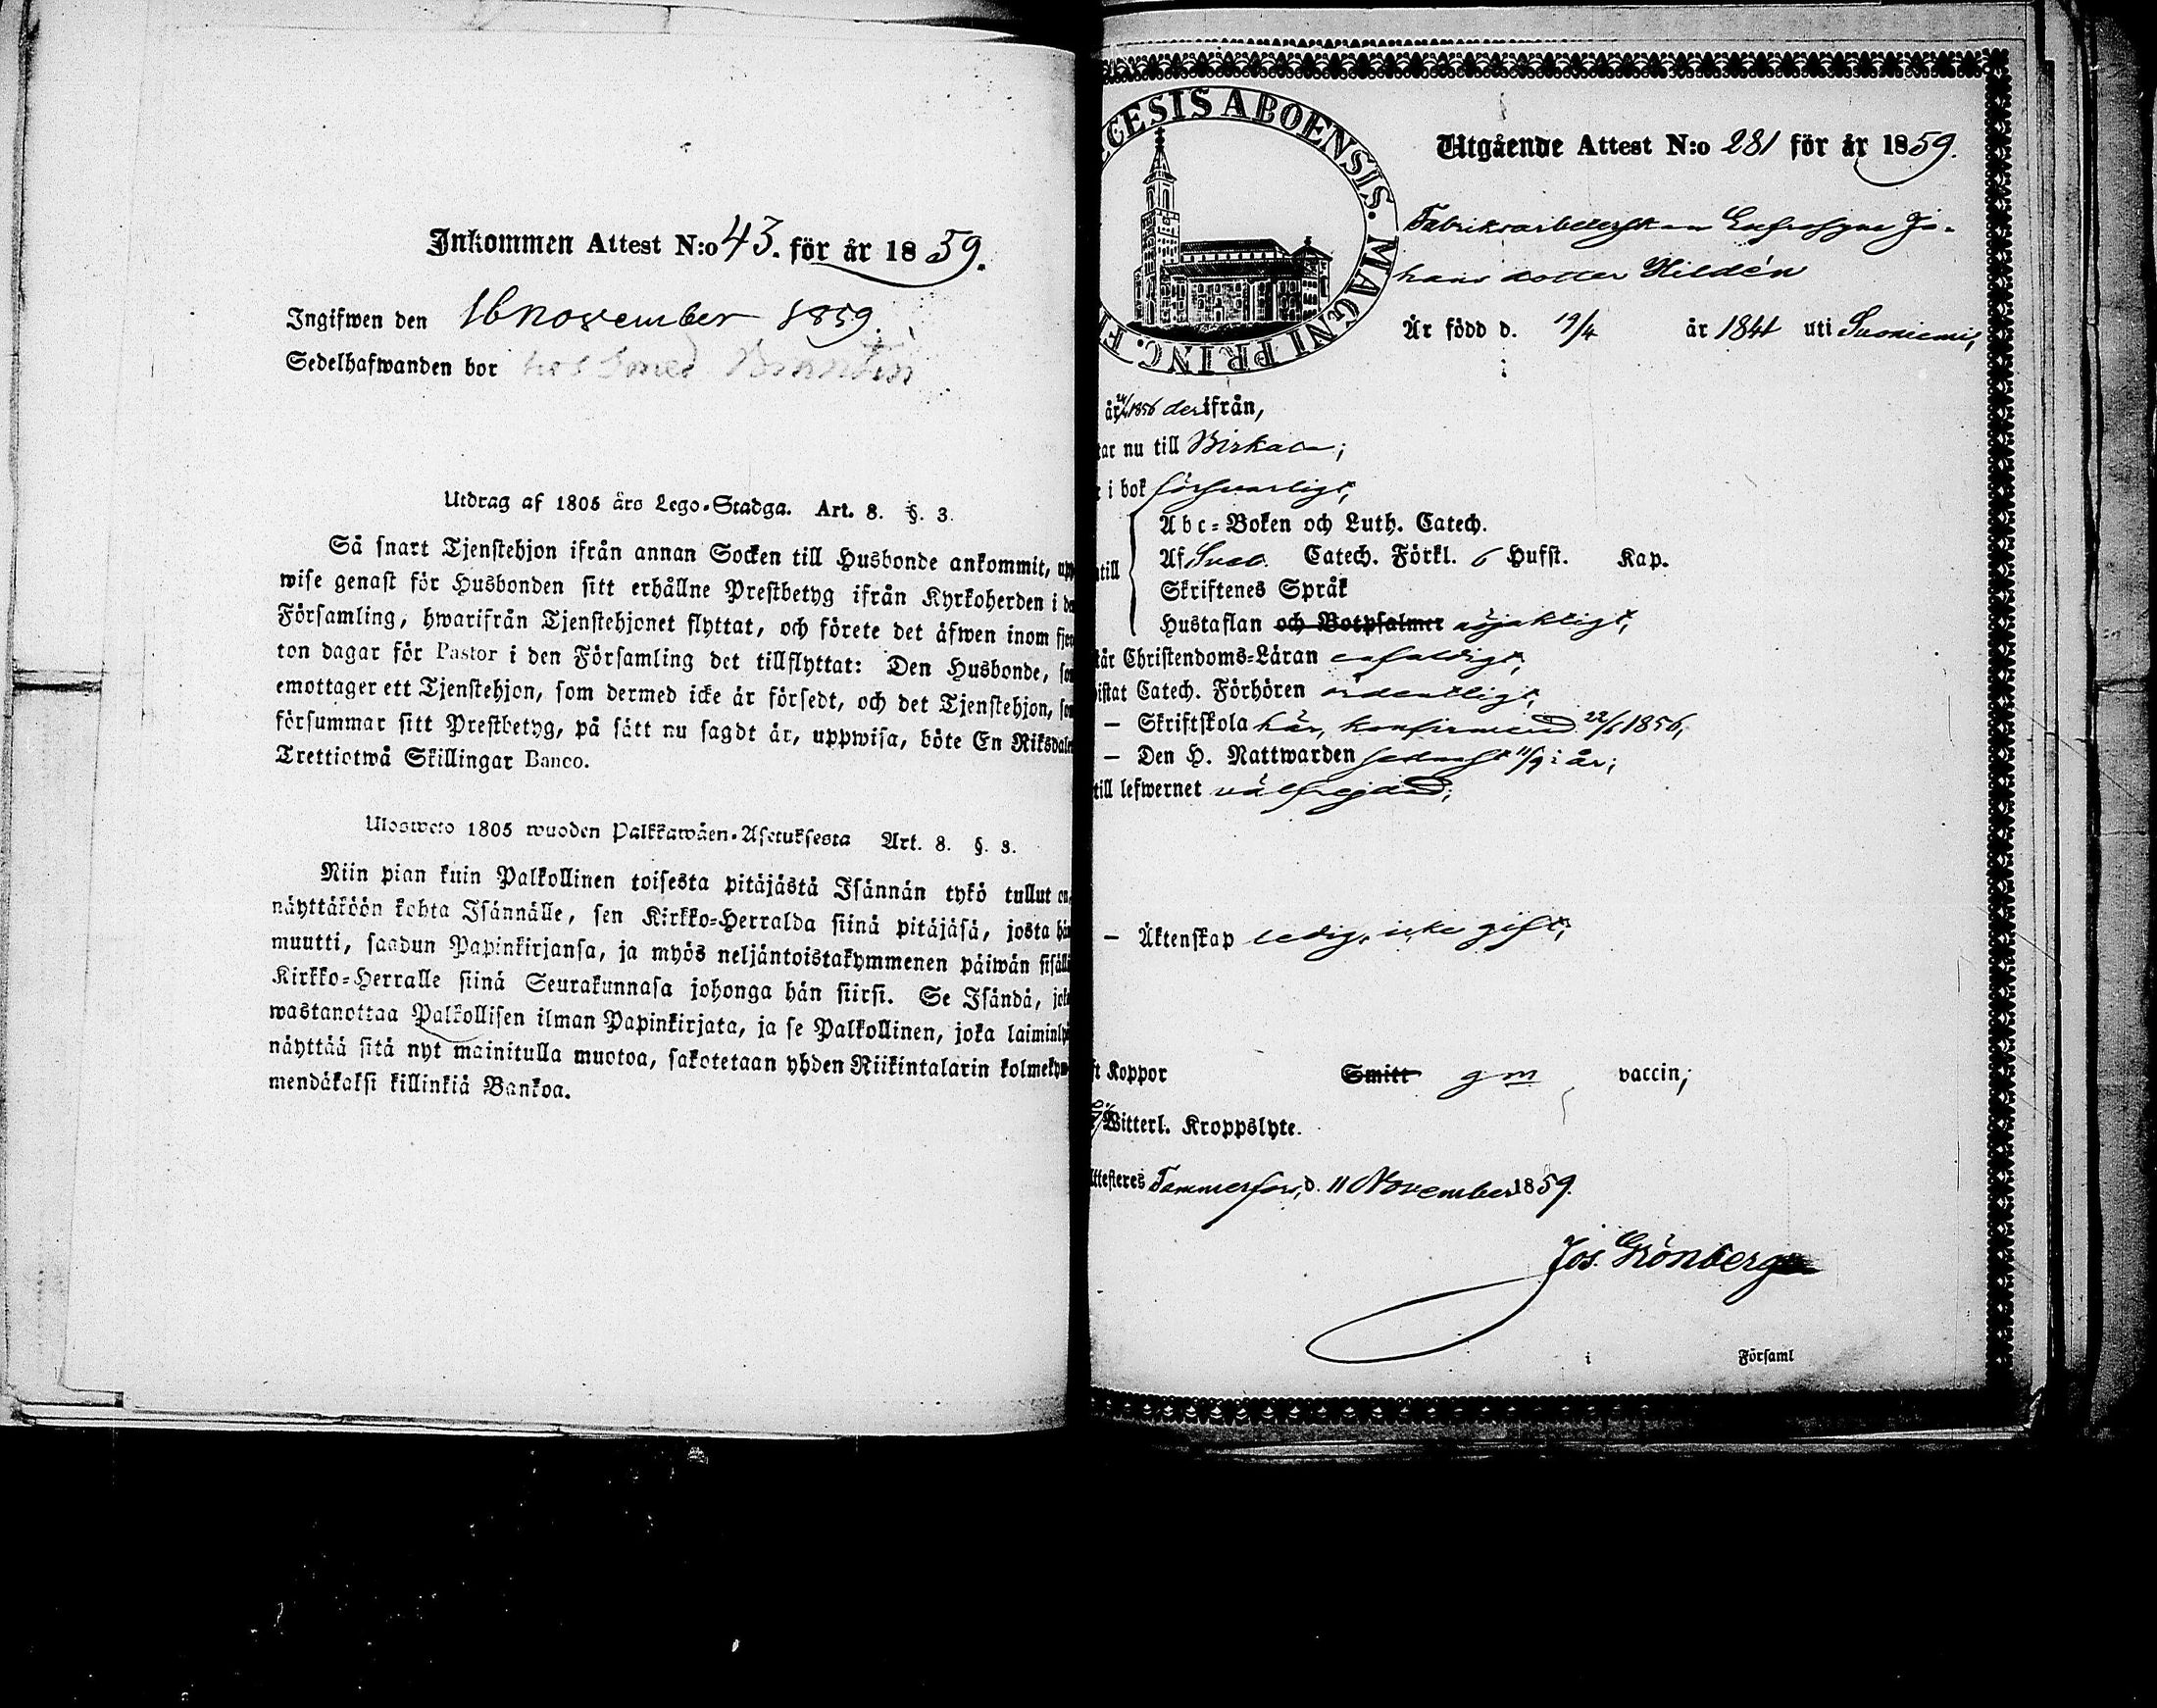 Inkommen Attest N:o 43. för år 1859.
Ingifwen den 16 november 1859.
Sedelhafwanden bor hos
Utdrag af 1805 års Lego-Stadga. Art. 8. §. 3.
Så snart Tjenstehjon ifrån annan Socken till Husbonde ankommit, upp
wise genast för Husbonden sitt erhållne Prestbetyg ifrån Kyrkoherden i de
Församling, hwarifrån Tjenstehjonet flyttat, och förete det äfwen inom fjor
ton dagar för Pastor i den Församling det tillflyttat: Den Husbonde, so
emottager ett Tjenstehjon, som dermed icke är försedt, och det Tjenstehjon, so
försummar sitt Prestbetyg, på sätt nu sagdt är, uppwisa, böte En Riksdale
Trettiotwå Skillingar Banco.
Ulosweto 1805 wuoden Palkkawäen-Asetuksesta Art. 8. §. 3.
Niin pian kuin Palkollinen toisesta pitäjästä Isännän tykö tullut on,
näyttäköön kohta Isännälle, sen Kirkko-Herralda siinä pitäjäsä, josta hän
muutti, saadun Papinkirjansa, ja myös neljäntoistakymmenen päiwän sisäll
Kirkko-Herralle siinä Seurakunnasa johonga hän siirsi. Se Isändä, jok
wastanottaa Palkollisen ilman Papinkirjata, ja se Palkollinen, joka laiminly
näyttää sitä nyt mainitulla muotoa, sakotetaan yhden Riikintalarin kolmekym
mendäkaksi killinkiä Bankoa.
CESIS ABOENSIS. MAGNI PRINC. F
Utgående Attest N:o 281 för år 1859.
Fabriksarbeterskan Eufrosyne Jo-
hans dotter Hildén
År född d. 19/4 år 1841 uti Suoniemi,
år 1856 derifrån,
tar nu till Birkala;
i bok försvarligt,
Abc-Boken och Luth. Catech.
Af Sveb. Catech. Förkl. 6 Hufst. Kap.
ntill
Skriftenes Språk
Hustaflan och Botpsalmer nöjaktigt,
tår Christendoms-Läran enfaldigt,
istat Catech. Förhören ordentligt,
— Skriftskola här, konfirmerad 22/6 1856,
— Den H. Nattwarden sednast 11/9 i år;
till lefwernet välfrejdad;
— Äktenskap ledig, icke gift;
t Koppor Smitt gm vaccin;
Witterl. Kroppslyte.
ttesteres Tammerfors, d. 11 November 1859.
Jos. Grönberg
i Församl